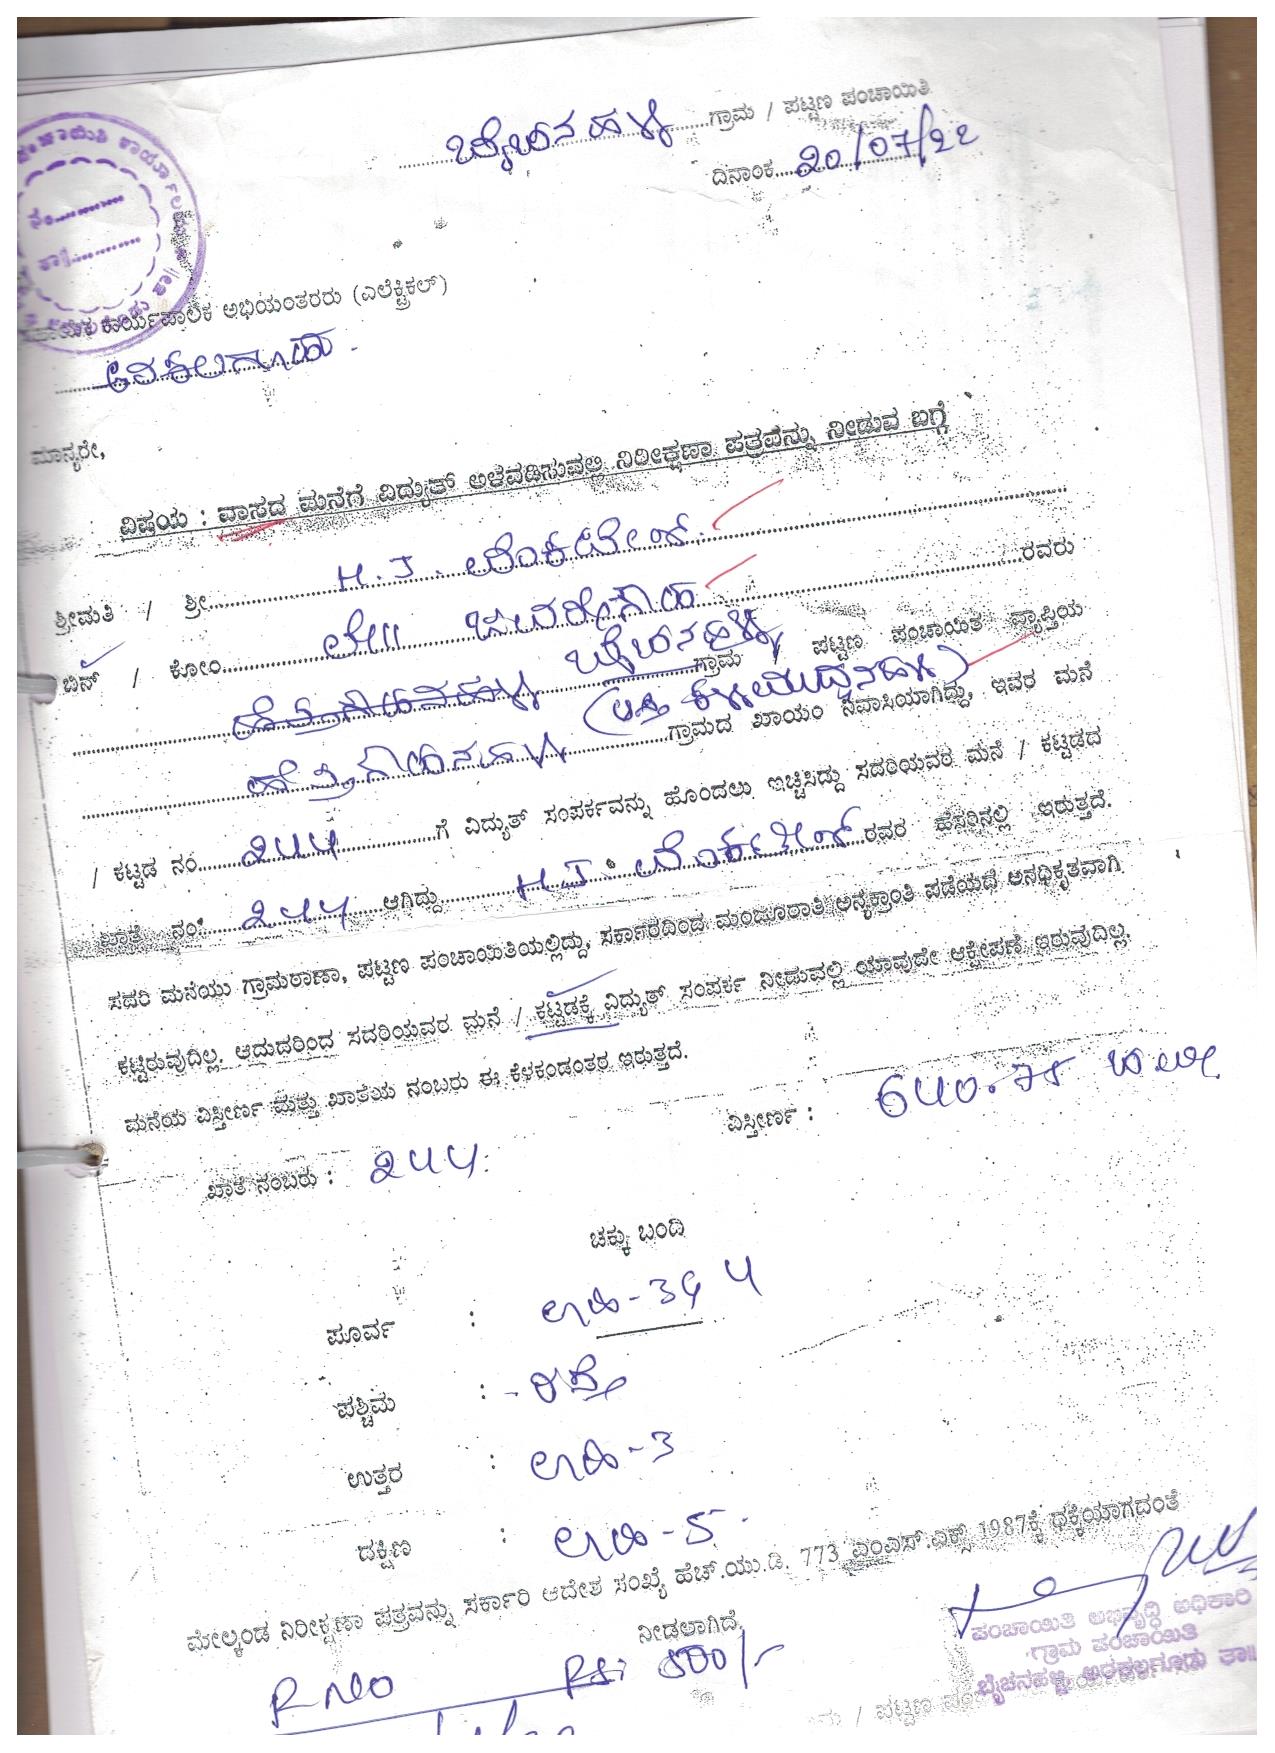 ಬೈಚನಹಳ್ಳಿ ಗ್ರಾಮ / ಪಟ್ಟಣ ಪಂಚಾಯಿತಿ
ದಿನಾಂಕ 20/07/22
ನಂ
ತಾ||
ಕಾರ್ಯಪಾಲಕ ಅಭಿಯಂತರರು (ಎಲೆಕ್ಟ್ರಿಕಲ್)
ಅರಕಲಗೂಡು.
ಮಾನ್ಯರೇ,
ವಿಷಯ : ವಾಸದ ಮನೆಗೆ ವಿದ್ಯುತ್ ಅಳವಡಿಸುವಲ್ಲಿ ನಿರೀಕ್ಷಣಾ ಪತ್ರವನ್ನು ನೀಡುವ ಬಗ್ಗೆ
ಶ್ರೀಮತಿ / ಶ್ರೀ H.J. ವೆಂಕಟೇಶ್.
ಬಿನ್ / ಕೋಂ ಲೇ|| ಜವರೇಗೌಡ ರವರು
ಬೈಚನಹಳ್ಳಿ ಗ್ರಾಮ / ಪಟ್ಟಣ ಪಂಚಾಯಿತಿ ವ್ಯಾಪ್ತಿಯ
ಗ್ರಾಮದ ಖಾಯಂ ನಿವಾಸಿಯಾಗಿದ್ದು, ಇವರ ಮನೆ
/ ಕಟ್ಟಡ ನಂ. 244 ಗೆ ವಿದ್ಯುತ್ ಸಂಪರ್ಕವನ್ನು ಹೊಂದಲು ಇಚ್ಚಿಸಿದ್ದು ಸದರಿಯವರ ಮನೆ / ಕಟ್ಟಡದ
ಖಾತೆ ನಂ: 244 ಆಗಿದ್ದು H.J. ವೆಂಕಟೇಶ್ ರವರ ಹೆಸರಿನಲ್ಲಿ ಇರುತ್ತದೆ.
ಸದರಿ ಮನೆಯು ಗ್ರಾಮಠಾಣಾ, ಪಟ್ಟಣ ಪಂಚಾಯಿತಿಯಲ್ಲಿದ್ದು, ಸರ್ಕಾರದಿಂದ ಮಂಜೂರಾತಿ ಅನ್ಯಕ್ರಾಂತಿ ಪಡೆಯದೆ ಅನಧಿಕೃತವಾಗಿ
ಕಟ್ಟಿರುವುದಿಲ್ಲ. ಆದುದರಿಂದ ಸದರಿಯವರ ಮನೆ / ಕಟ್ಟಡಕ್ಕೆ ವಿದ್ಯುತ್ ಸಂಪರ್ಕ ನೀಡುವಲ್ಲಿ ಯಾವುದೇ ಆಕ್ಷೇಪಣೆ ಇರುವುದಿಲ್ಲ.
ಮನೆಯ ವಿಸ್ತೀರ್ಣ ಮತ್ತು ಖಾತೆಯ ನಂಬರು ಈ ಕೆಳಕಂಡಂತರ ಇರುತ್ತದೆ.
ಖಾತೆ ನಂಬರು : 244. ವಿಸ್ತೀರ್ಣ : 640.75 ಚ.ಅಡಿ
ಚಕ್ಕು ಬಂದಿ
ಪೂರ್ವ :
ಪಶ್ಚಿಮ : ರಸ್ತೆ
ಉತ್ತರ :
ದಕ್ಷಿಣ :
ಮೇಲ್ಕಂಡ ನಿರೀಕ್ಷಣಾ ಪತ್ರವನ್ನು ಸರ್ಕಾರಿ ಆದೇಶ ಸಂಖ್ಯೆ ಹೆಚ್.ಯು.ಡಿ. 773 ಎಂಎಸ್.ಎಕ್ಸ್ 1987ಕ್ಕೆ ಧಕ್ಕೆಯಾಗದಂತೆ
ನೀಡಲಾಗಿದೆ.
ಪಂಚಾಯಿತಿ ಅಭಿವೃದ್ಧಿ ಅಧಿಕಾರಿ
ಗ್ರಾಮ ಪಂಚಾಯಿತಿ
ಬೈಚನಹಳ್ಳಿ, ಅರಕಲಗೂಡು ತಾ||
R NO Rs: 500/-
/ ಪಟ್ಟಣ